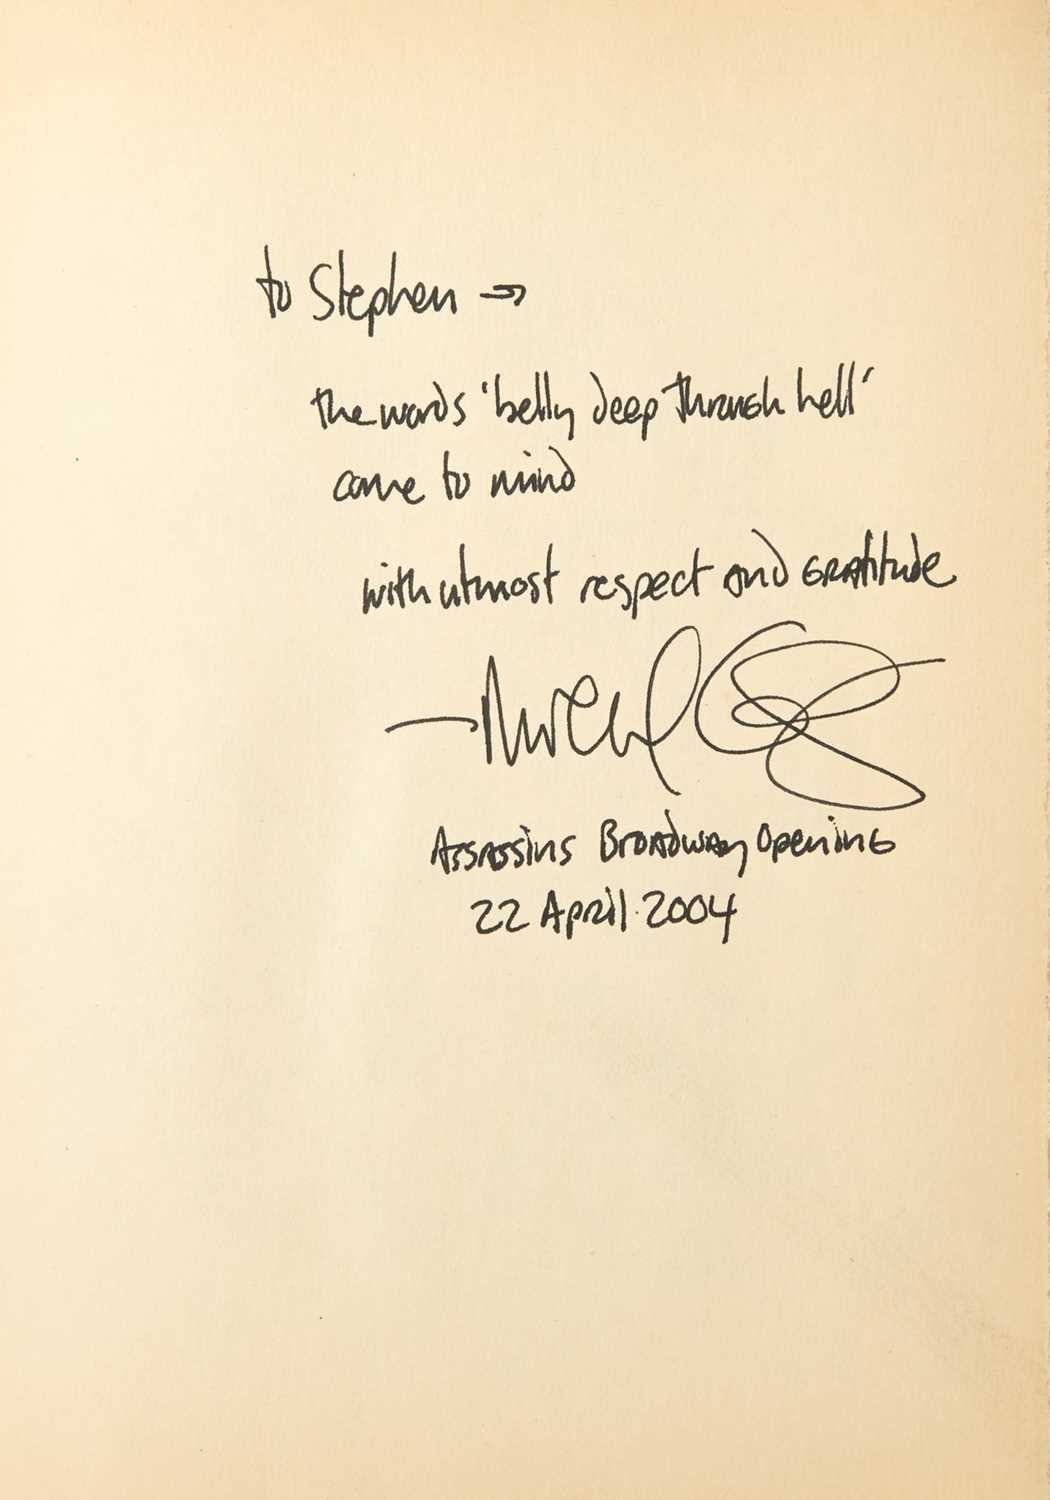 to Stephen →
the words 'belly deep through hell'
come to mind
with utmost respect and Gratitude
— Michael
Assassins Broadway Opening
22 April 2004